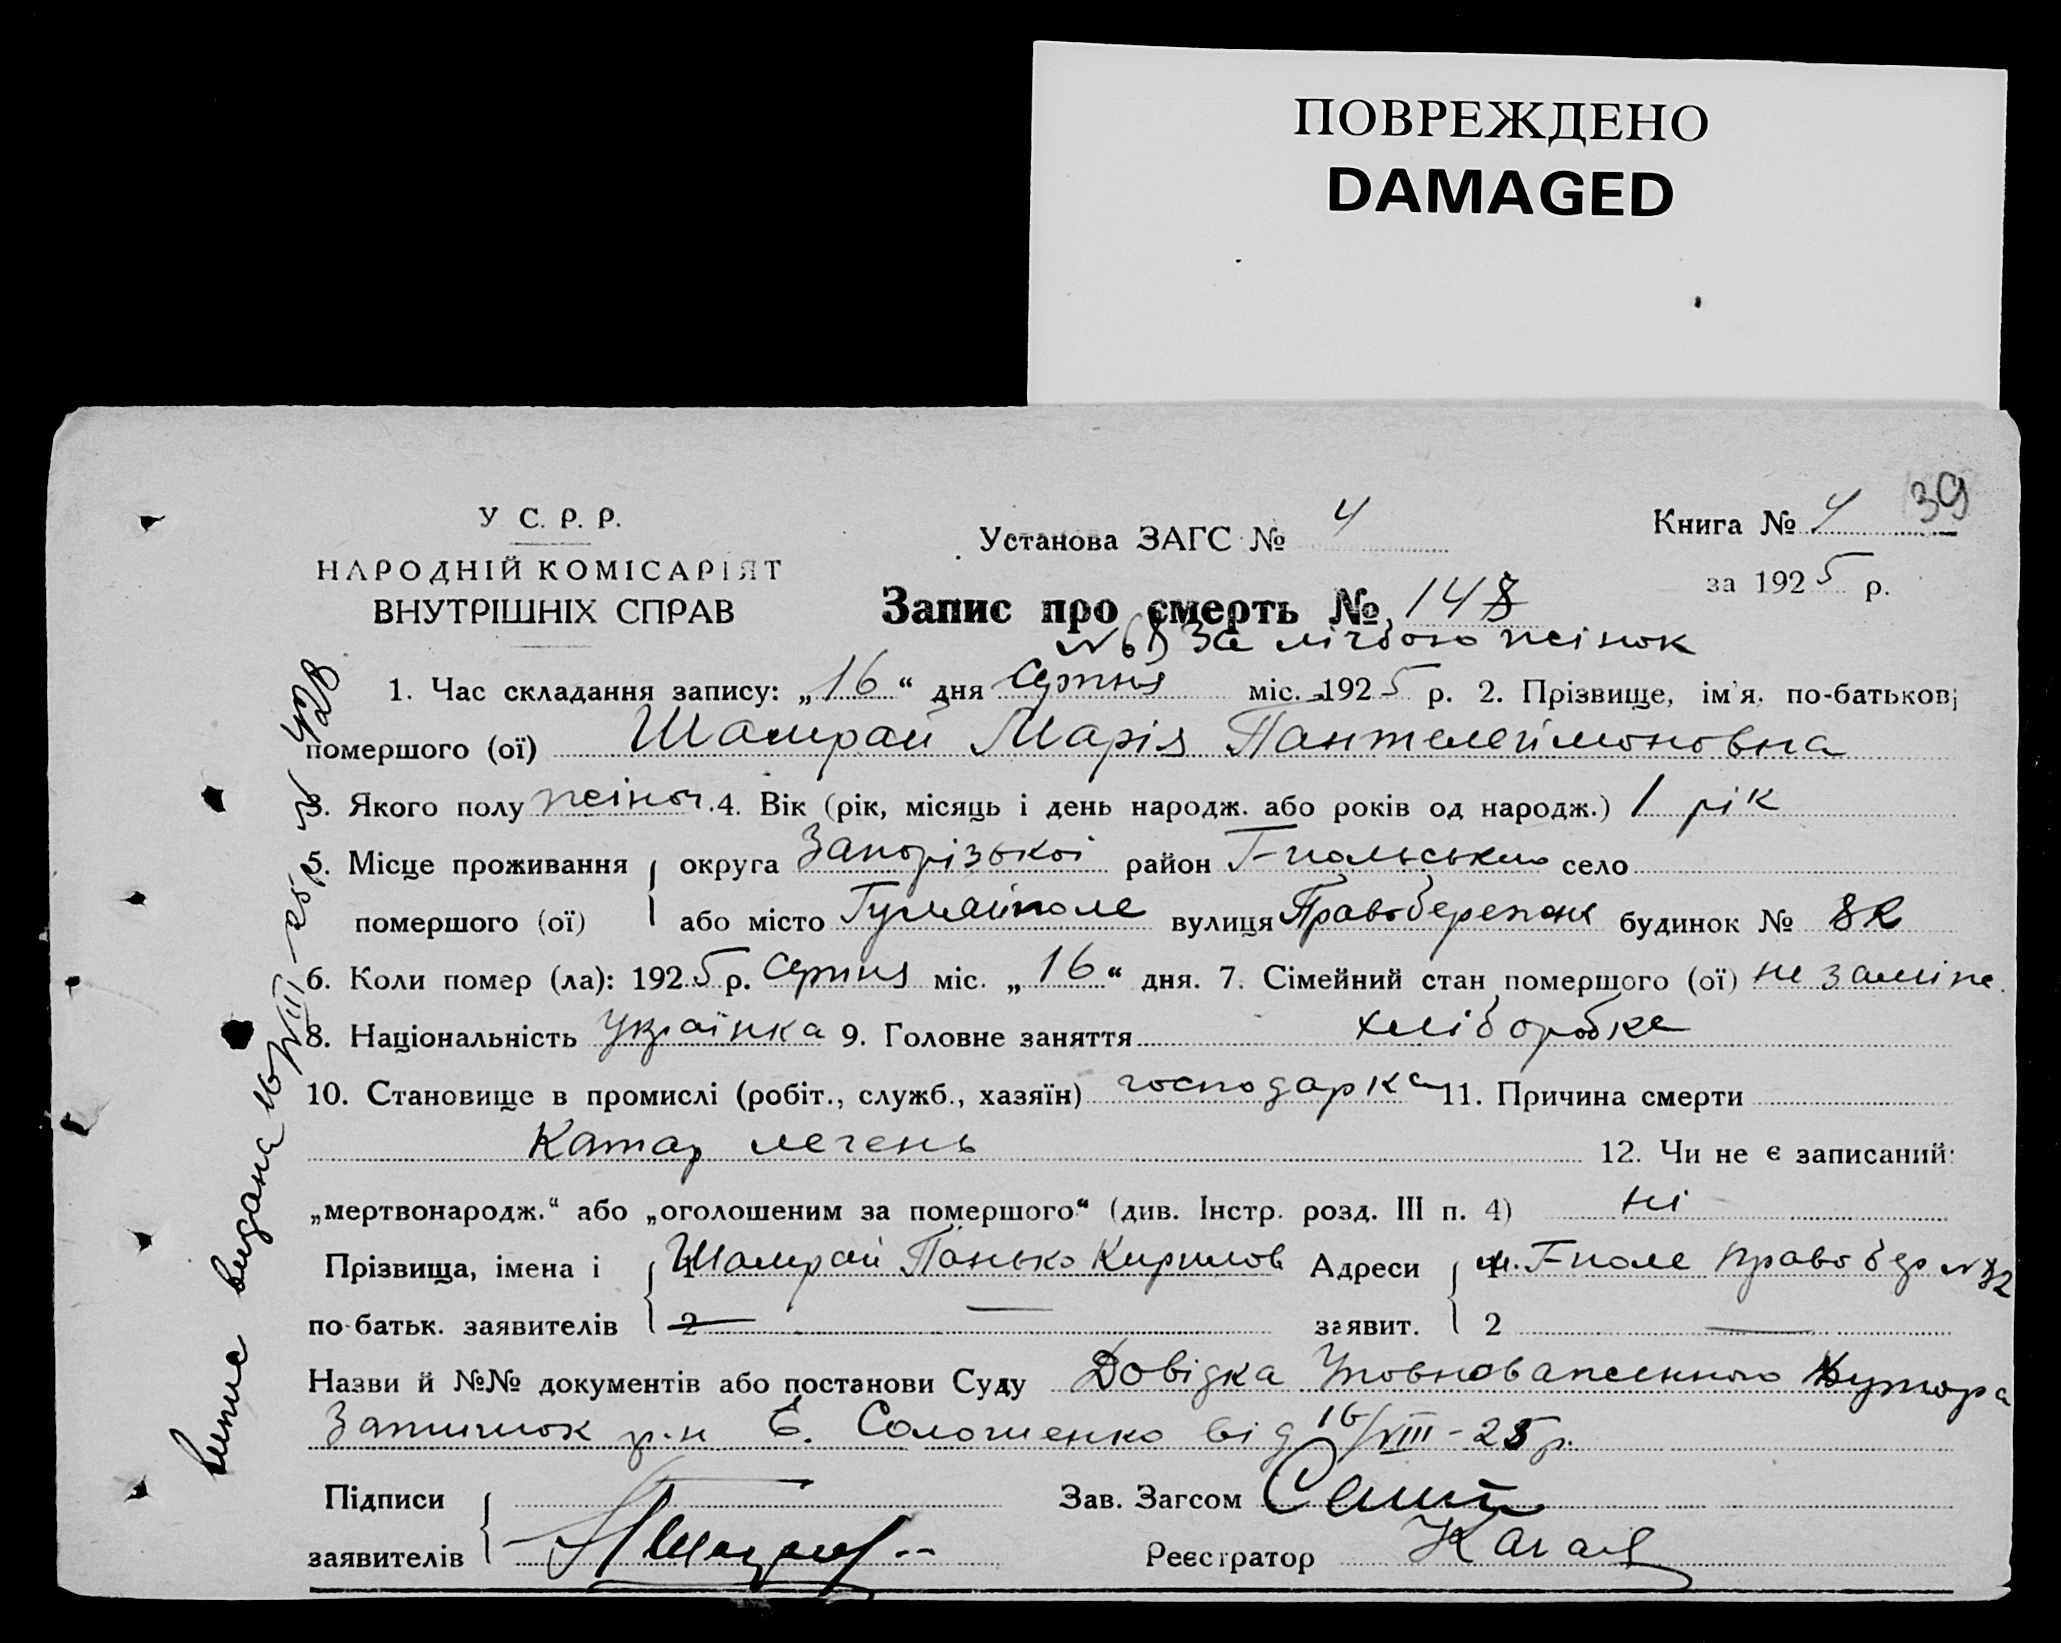 ПОВРЕЖДЕНО
DAMAGED
39
У С. Р. Р.
НАРОДНІЙ КОМІСАРІЯТ
ВНУТРІШНІХ СПРАВ
Установа ЗАГС № 4
Книга № 4
за 1925 р.
Запис про смерть № 148
№ 68 За лічбою жінок
1. Час складання запису: „16“ дня серпня міс. 1925 р. 2. Прізвище, ім'я, по-батькові
помершого (ої) Шамрай Марія Пантелеймоновна
3. Якого полу жіноч. 4. Вік (рік, місяць і день народж. або років од народж.) 1 рік
5. Місце проживання округа Запорізької район Г-польського село
помершого (ої) або місто Гуляйполе вулиця Правобережна будинок № 82
6. Коли помер (ла): 1925 р. серпня міс. „16“ дня. 7. Сімейний стан помершого (ої) не заміж.
8. Національність українка 9. Головне заняття хліборобка
10. Становище в промислі (робіт., служб., хазяїн) господарка 11. Причина смерти
Катар легень 12. Чи не є записаний:
„мертвонародж.“ або „оголошеним за помершого“ (див. Інстр. розд. III п. 4) ні
Прізвища, імена і 1 Шамрай Панько Кирилов Адреси 1 м. Г-поле Правобер № 82
по-батьк. заявителів 2 — заявит. 2 —
Назви й №№ документів або постанови Суду Довідка Уповноваженного Хутора
Затишок р.н Е. Солошенко від 16/VIII-25 р.
Підписи Зав. Загсом
заявителів Реєстратор
випис видана 16/VIII-25 р. № 428